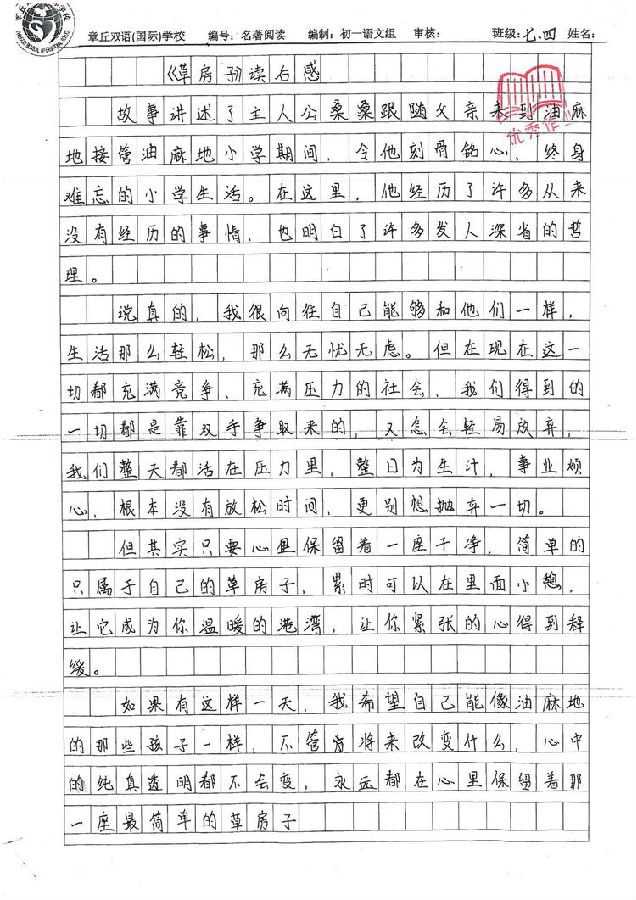 章丘双语(国际)学校 编号：名著阅读 编制：初一语文组 审核： 班级：七.四 姓名：
《草房子》读后感
优秀作业
故事讲述了主人公桑桑跟随父亲来到油麻
地接管油麻地小学期间，令他刻骨铭心，终身
难忘的小学生活。在这里，他经历了许多从来
没有经历的事情，也明白了许多发人深省的哲
理。
说真的，我很向往自己能够和他们一样，
生活那么轻松，那么无忧无虑。但在现在这一
切都充满竞争，充满压力的社会，我们得到的
一切都是靠双手争取来的，又怎会轻易放弃，
我们整天都活在压力里，整日为生计，事业烦
心，根本没有放松时间，更别想抛弃一切。
但其实只要心里保留着一座干净，简单的
只属于自己的草房子，累时可以在里面小憩，
让它成为你温暖的港湾，让你紧张的心得到释
缓。
如果有这样一天，我希望自己能像油麻地
的那些孩子一样，不管将来改变什么，心中
的纯真透明都不会变，永远都在心里保留着那
一座最简单的草房子